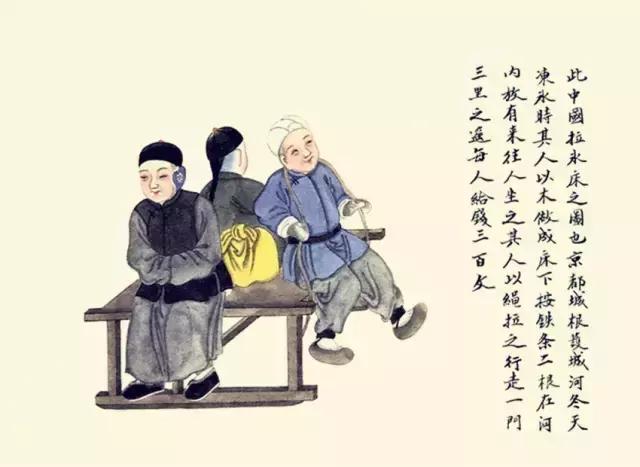 此中國拉氷床之圖也京都城根護城河冬天
凍氷時其人以木做成床下按鉄条二根在河
內放有来往人坐之其人以繩拉之行走一門
三里之遥每人給錢三百文